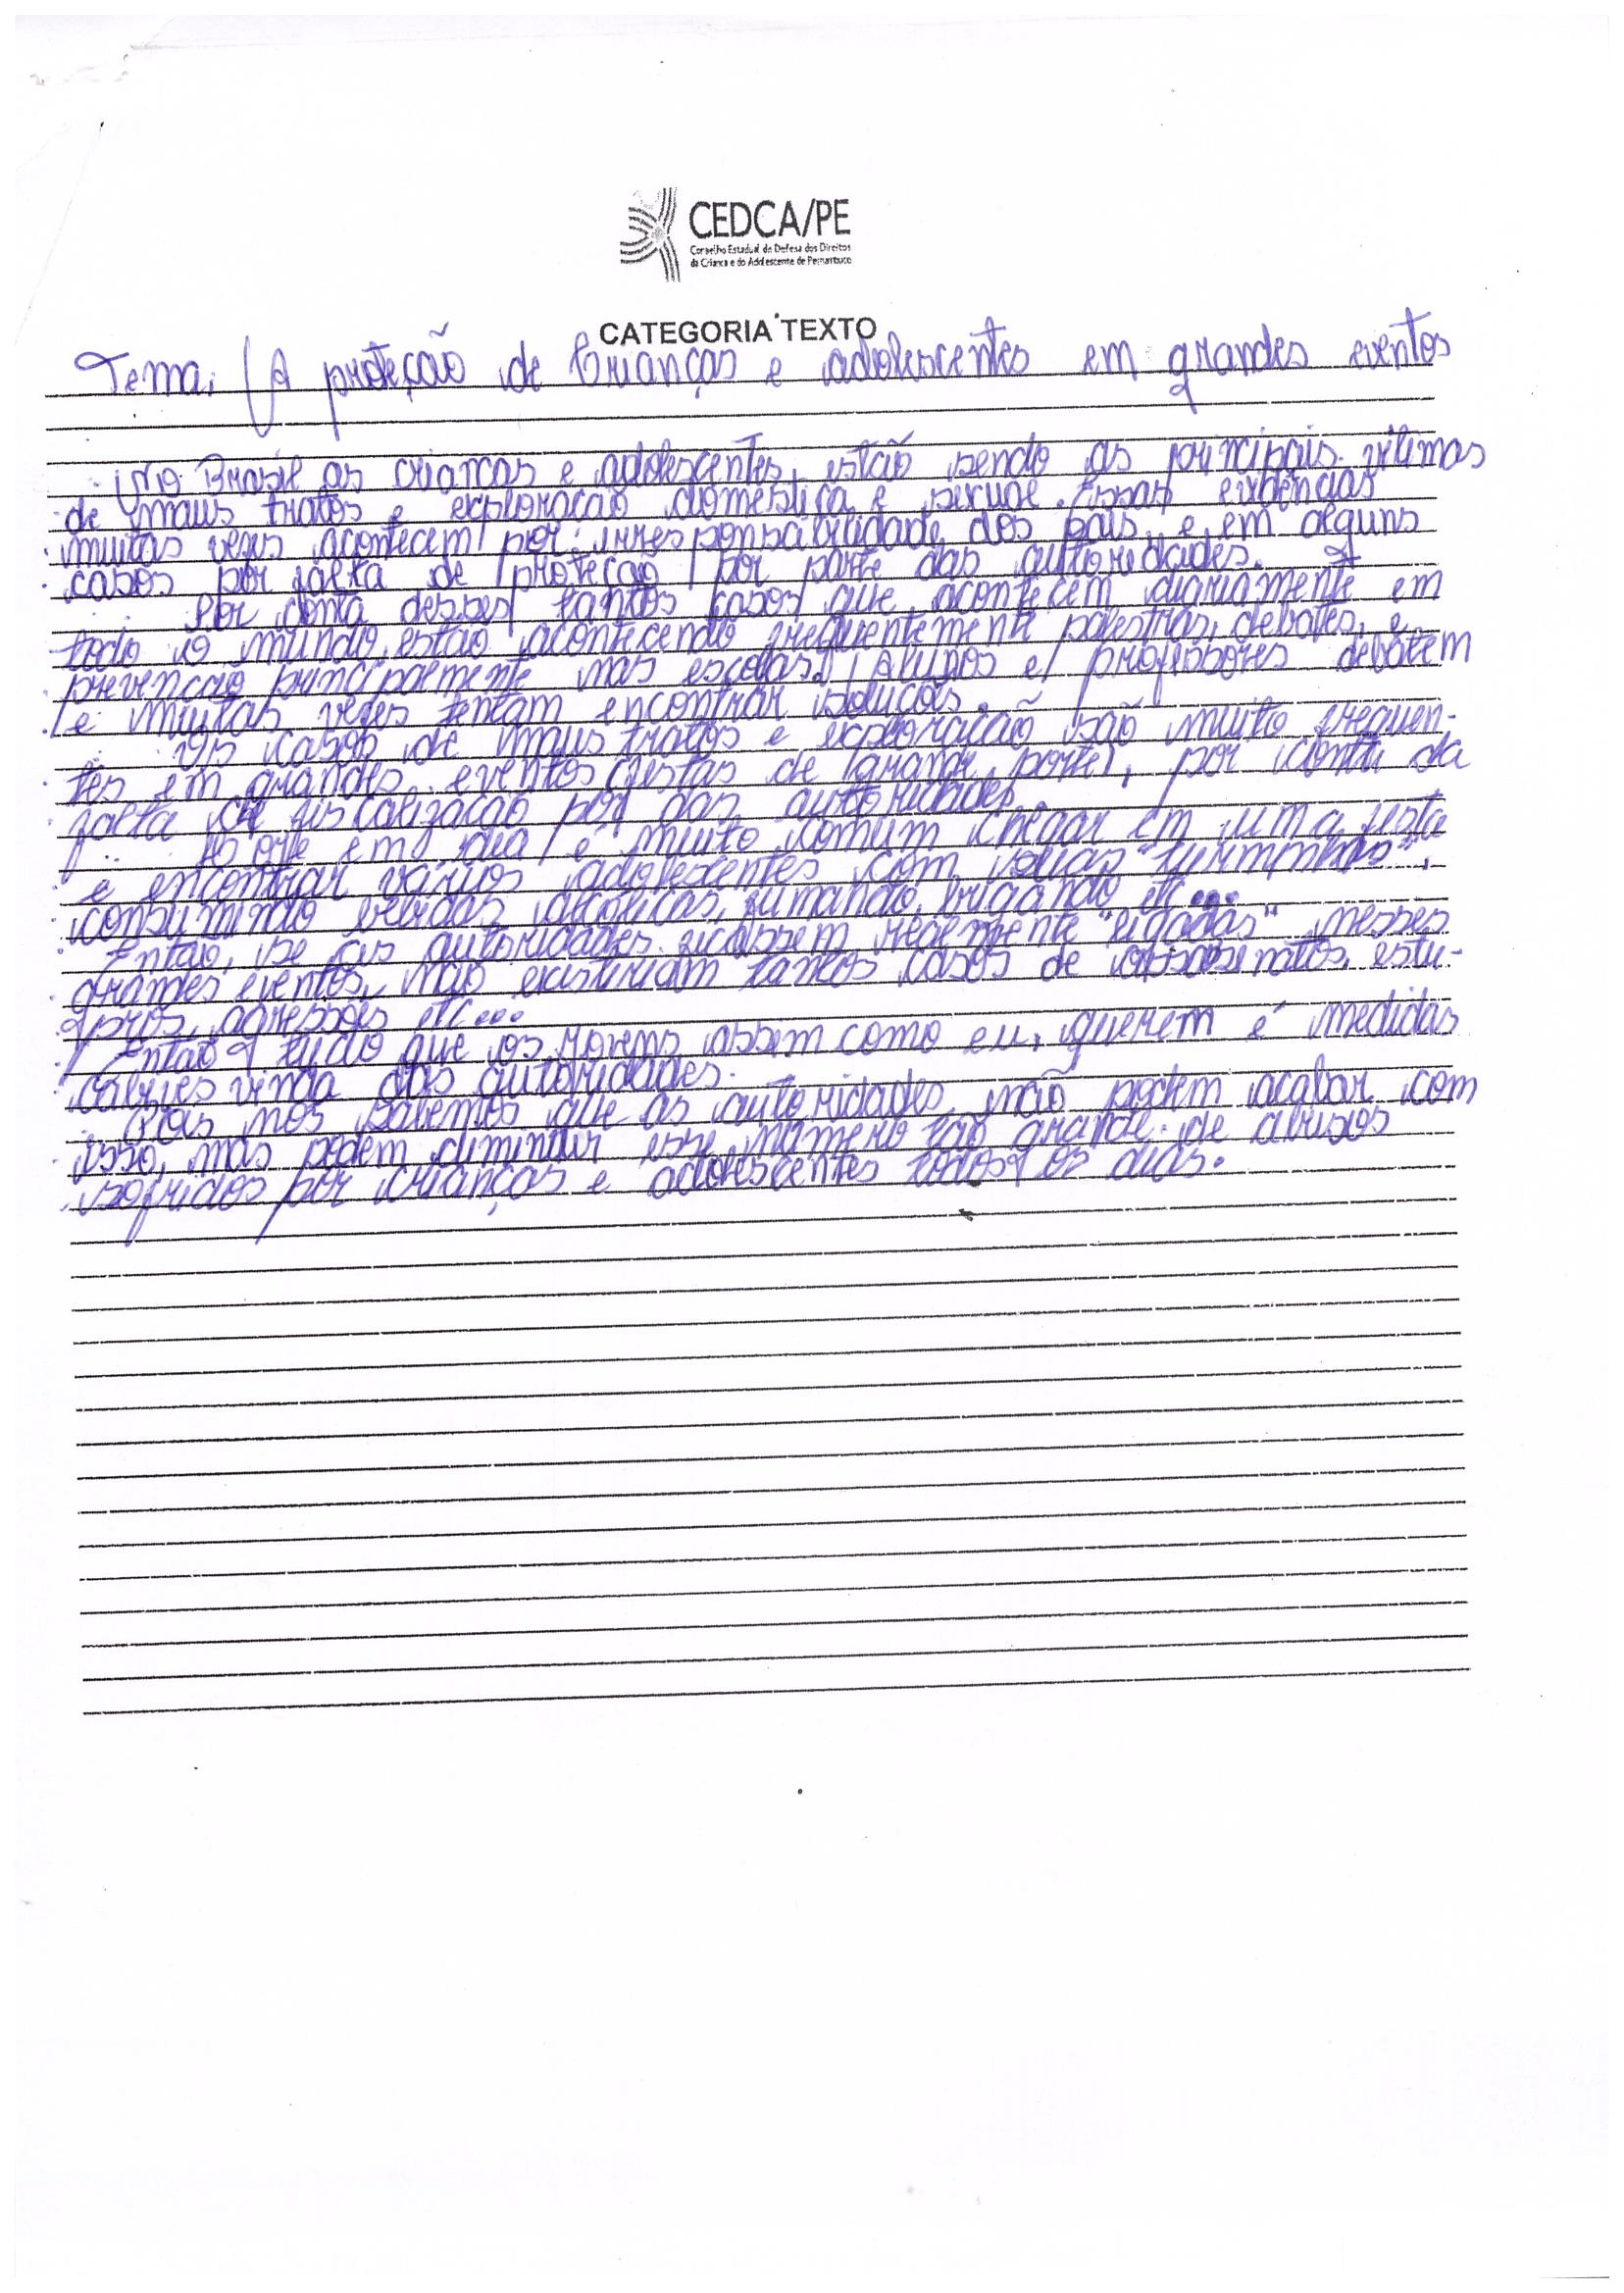 CEDCA/PE
Conselho Estadual de Defesa dos Direitos
da Criança e do Adolescente de Pernambuco
CATEGORIA TEXTO
Tema: A proteção de Crianças e adolescentes em grandes eventos
No Brasil as crianças e adolescentes, estão sendo as principais vítimas
de maus tratos e exploração doméstica e sexual. Essas evidências
muitas vezes acontecem por irresponsabilidade dos pais, e em alguns
casos por falta de proteção por parte das autoridades.
Por conta desses tantos casos que acontecem diariamente em
todo o mundo, estão acontecendo frequentemente palestras, debates, e
prevenção principalmente nas escolas. Alunos e professores debatem
e muitas vezes tentam encontrar soluções.
Os casos de maus tratos e exploração são muito frequen-
tes em grandes eventos (festas de grande porte), por conta da
falta de fiscalização por das autoridades.
Hoje em dia é muito comum chegar em uma festa
e encontrar vários adolescentes com suas "turminhas",
consumindo bebidas alcoólicas, fumando, brigando etc...
Então, se as autoridades ficassem realmente "ligadas" nesses
grandes eventos, não existiriam tantos casos de assassinatos, estu-
pros, agressões etc...
Então tudo que os jovens assim como eu, querem é medidas
cabíveis vinda das autoridades.
Pois nós sabemos que as autoridades, não podem acabar com
isso, mas podem diminuir esse número tão grande de abusos
sofridos por crianças e adolescentes todos os dias.